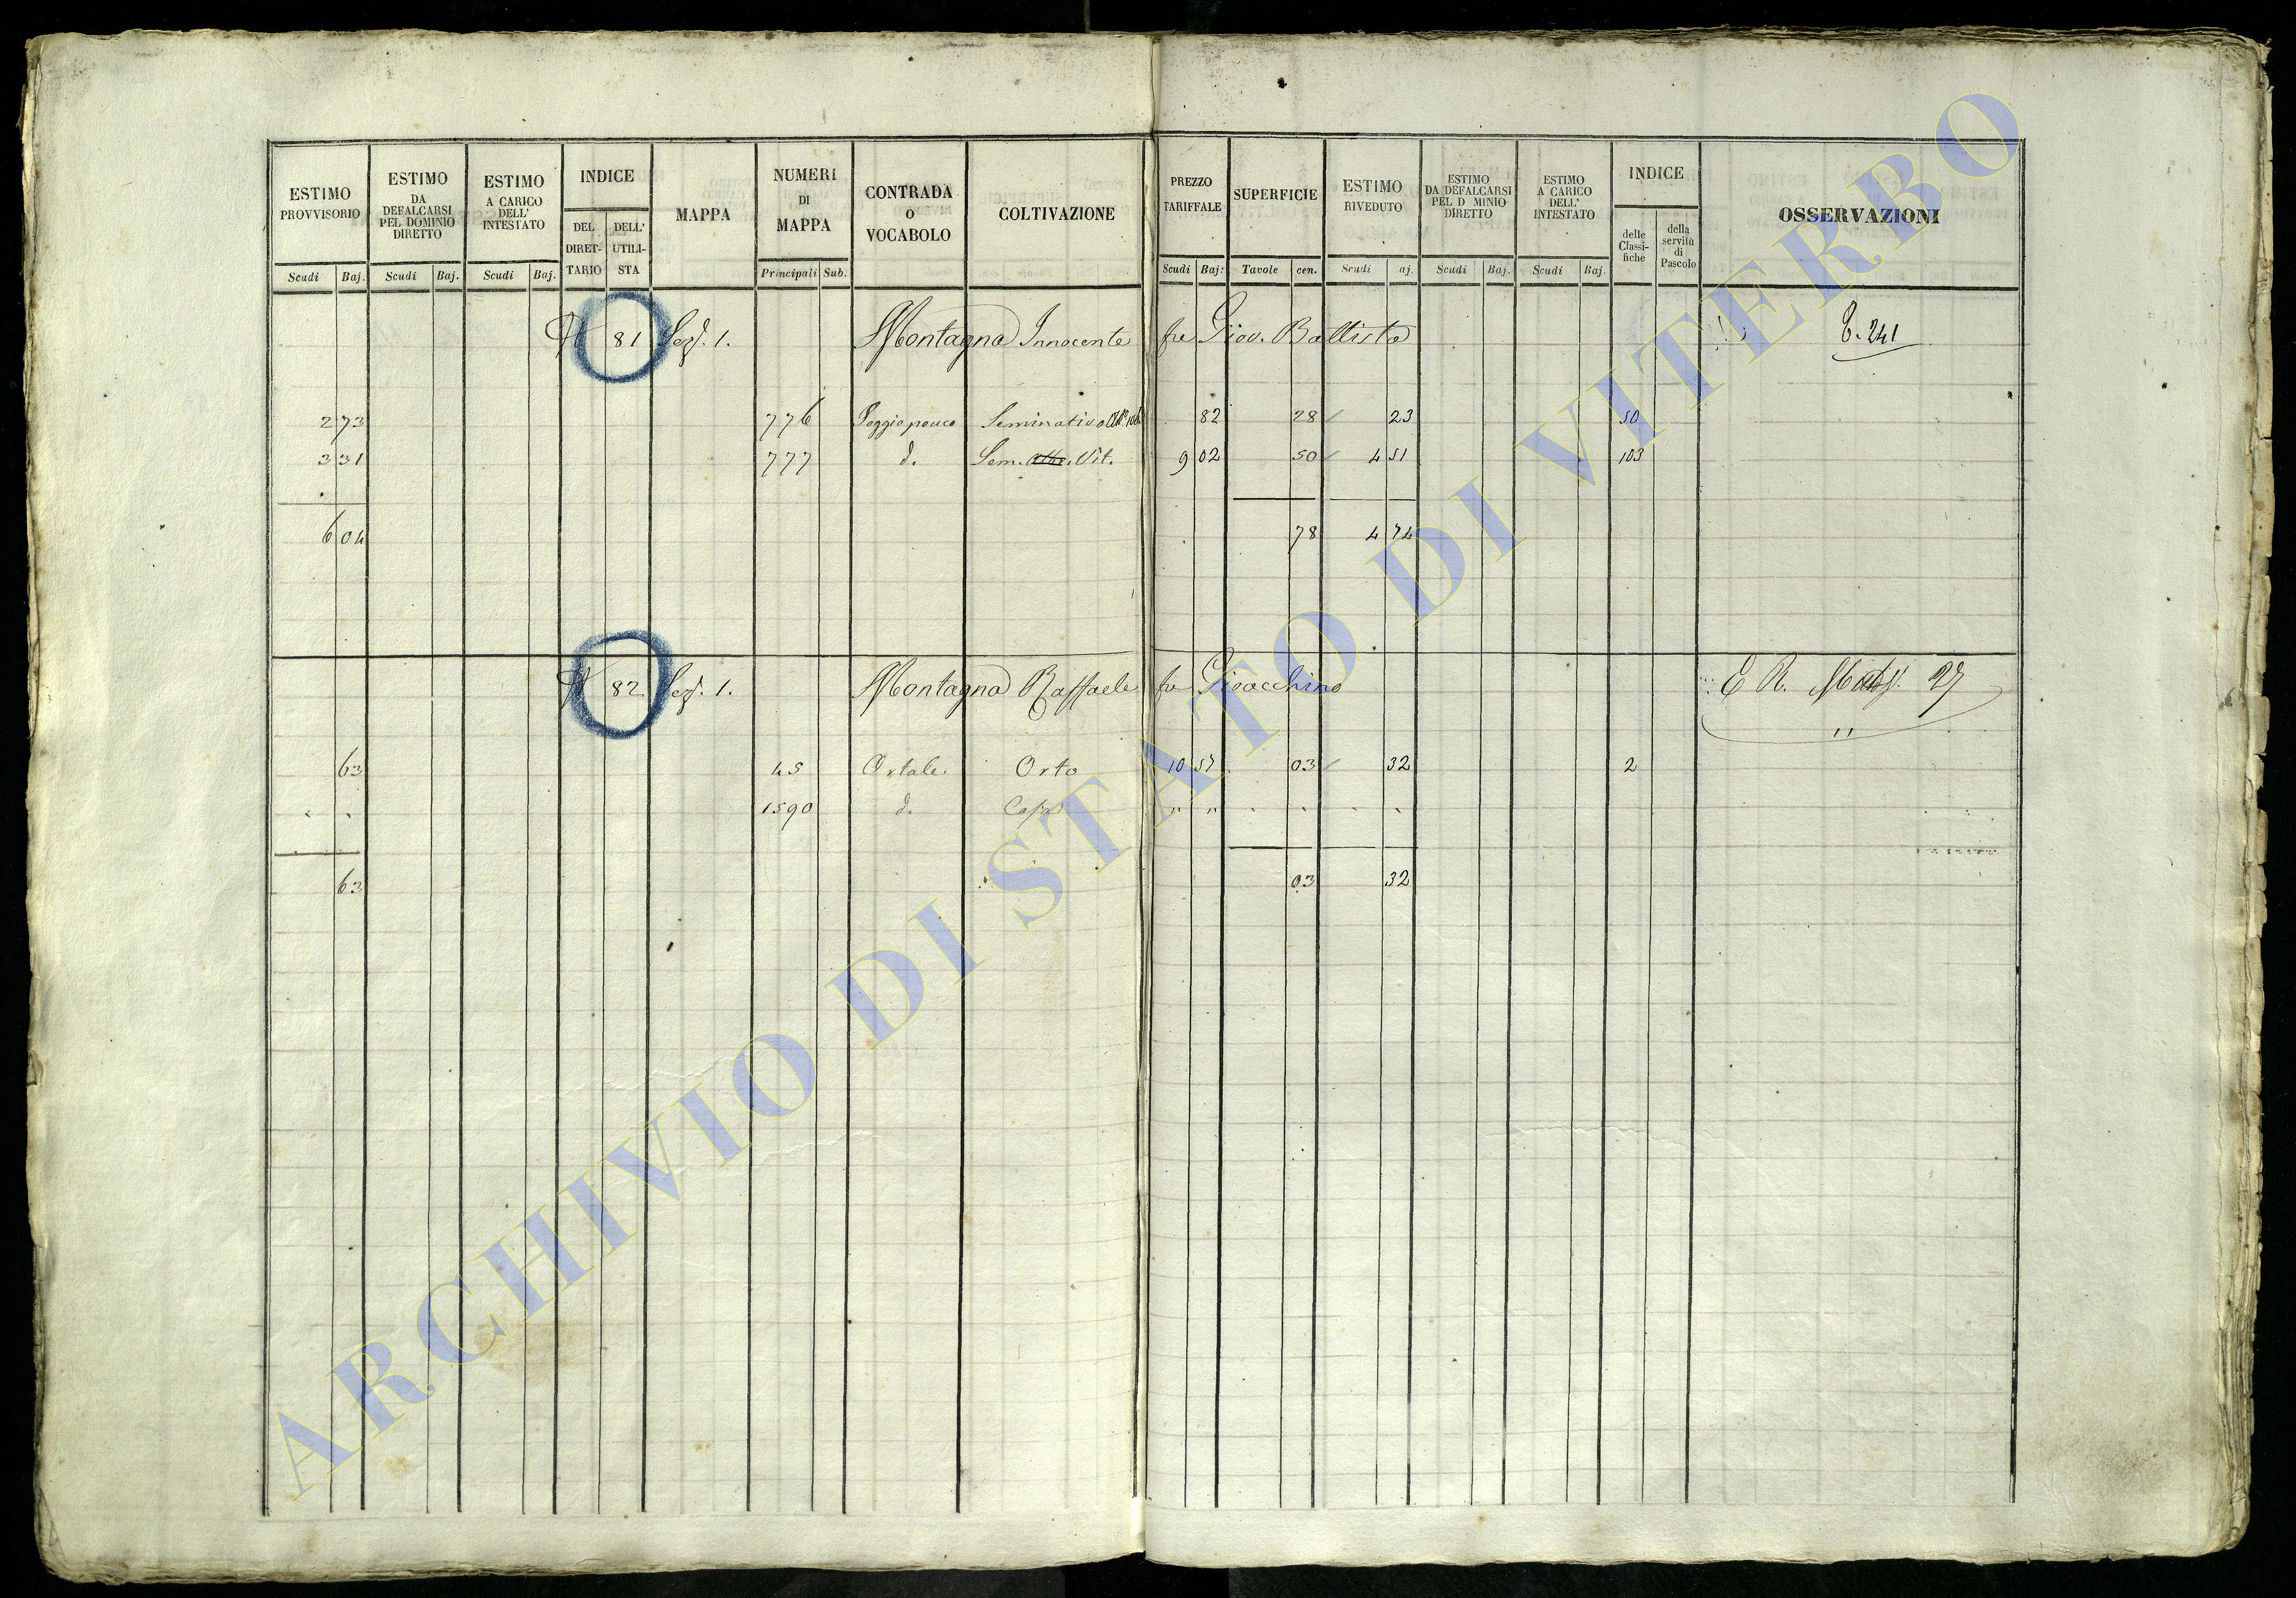 ESTIMO PROVVISORIO Scudi Baj.
ESTIMO DA DEFALCARSI PEL DOMINIO DIRETTO Scudi Baj.
ESTIMO A CARICO DELL' INTESTATO Scudi Baj.
INDICE DEL DIRETTARIO DELL' UTILISTA
MAPPA
NUMERI DI MAPPA Principali Sub.
CONTRADA O VOCABOLO
COLTIVAZIONE
PREZZO TARIFFALE Scudi Baj:
SUPERFICIE Tavole cen.
ESTIMO RIVEDUTO Scudi aj.
ESTIMO DA DEFALCARSI PEL D MINIO DIRETTO Scudi Baj.
ESTIMO A CARICO DELL' INTESTATO Scudi Baj.
INDICE delle Classifiche della servitù di Pascolo
OSSERVAZIONI
81 Sez. 1. Montagna Innocente fu Giov. Battista E. 241
2 73 776 Seminativo 82 28 23 50
3 31 777 d. Sem. Vit. 9 02 50 4 51 103
6 04 78 4 74
82 Sez. 1. Montagna Raffaele fu Gioacchino E R. 27
63 45 Ortale Orto 10 57 03 32 2
" " 1590 d. Casa " " " " " "
63 03 32
ARCHIVIO DI STATO DI VITERBO